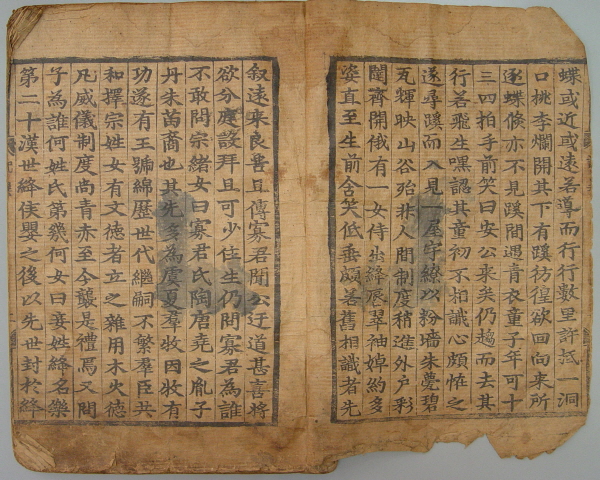 蝶或近或遠若導而行行數里許抵一洞
口桃李爛開其下有蹊彷徨欲回向來所
逐蝶倏亦不見蹊間遇青衣童子年可十
三四拍手前笑曰安公來矣仍趨而去其
行若飛生嘿認其童初不相識心頗怪之
遂尋蹊而入見一屋宇繚以粉墻朱甍碧
瓦輝映山谷殆非人間制度稍進外戶彩
閨齊開俄有一女侍出絳唇翠袖婥約多
姿直至生前含笑低垂頗善舊相識者先
叙遠來良苦且傳寡君聞公迂道甚喜將
欲分庭設拜且可少住生仍問寡君為誰
不敢問宗緒女曰寡君氏陶唐堯之胤子
丹朱苗裔也其先多為虞夏羣牧因牧有
功遂有王號綿歷世代繼嗣不繁羣臣共
和擇宗姓女有文德者立之雜用木火德
凡威儀制度尚青赤至今襲是禮焉又問
子為誰何姓氏第幾何女曰妾姓絳名樂
第二十漢世絳侯嬰之後以先世封於絳